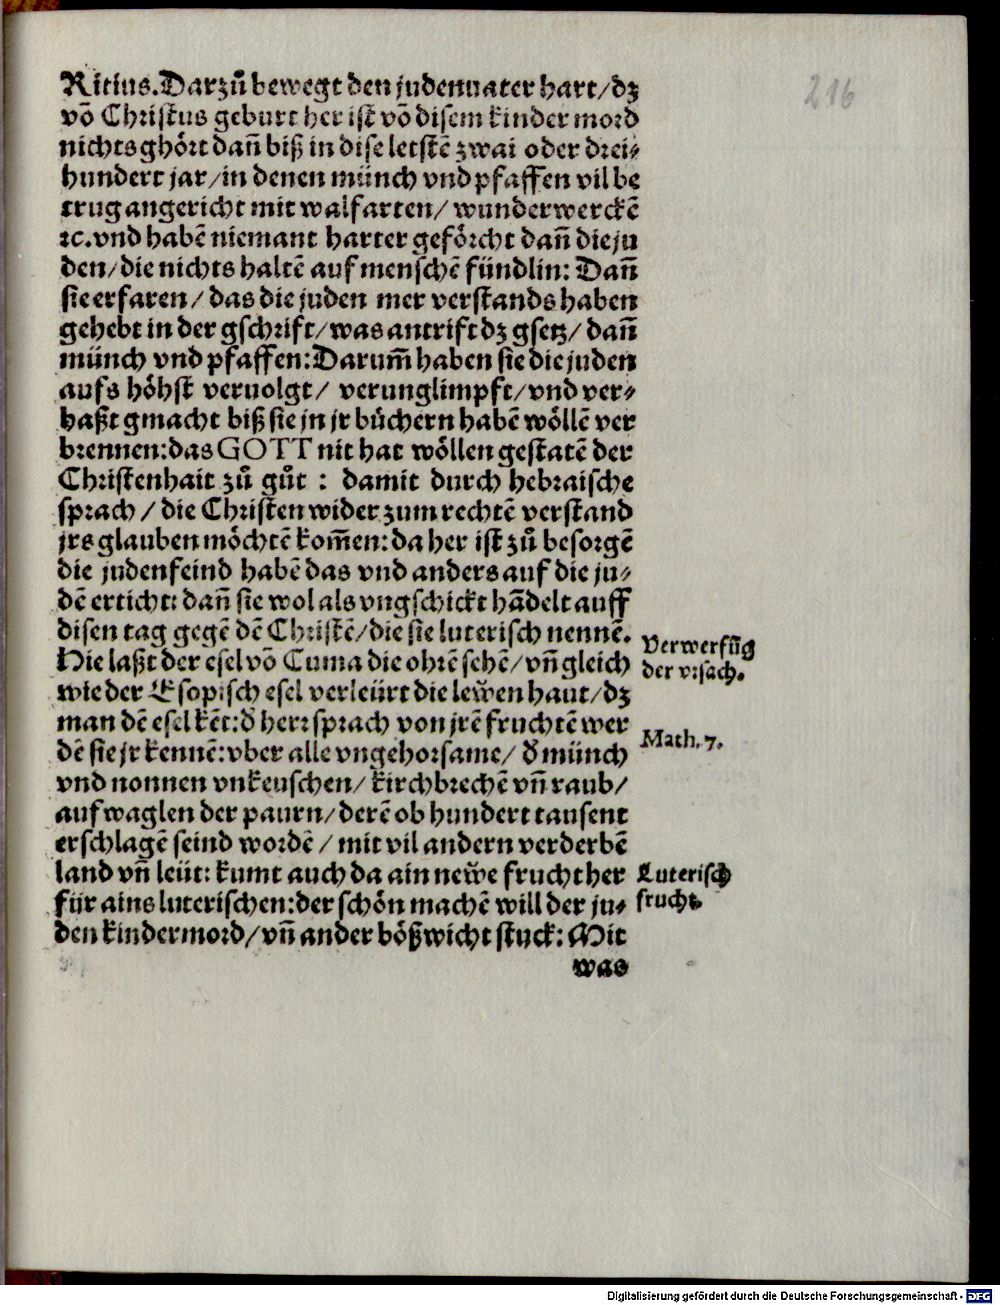 216
Ritius. Darzů bewegt den judenuater hart/dz
võ Christus geburt her ist võ disem kinder mord
nichts ghört dañ biß in dise letstẽ zwai oder drei⸗
hundert jar/in denen münch vnd pfaffen vil be
trug angericht mit walfarten/ wunderwerckẽ
ꝛc.vnd habẽ niemant harter geförcht dañ die ju
den/die nichts haltẽ auf menschẽ fündlin: Dañ
sie erfaren/ das die juden mer verstands haben
gehebt in der gschrift/was antrift dz gsetz/ dañ
münch vnd pfaffen:Darum̃ haben sie die juden
aufs höhst veruolgt/ verunglimpft/vnd ver⸗
haßt gmacht biß sie jn jr bůchern habẽ wöllẽ ver
brennen:das GOTT nit hat wöllen gestatẽ der
Christenhait zů gůt : damit durch hebraische
sprach / die Christen wider zum rechtẽ verstand
jrs glauben möchtẽ kom̃en:da her ist zů besorgẽ
die judenfeind habẽ das vnd anders auf die ju⸗
dẽ erticht: dañ sie wol als vngschickt hãdelt auff
disen tag gegẽ dẽ Christẽ/die sie luterisch nennẽ.
Hie laßt der esel võ Cuma die ohrẽ sehẽ/vñ gleich
wie der Esopisch esel verleürt die lewen haut/dz
man dẽ esel kẽt:d̕ herr sprach von jrẽ fruchtẽ wer
dẽ sie jr kennẽ:vber alle vngehorsame/ d̕ münch
vnd nonnen vnkeuschen/ kirchbrechẽ vñ raub/
auf waglen der paurn/derẽ ob hundert tausent
erschlagẽ seind wordẽ / mit vil andern verderbẽ
land vñ leüt: kumt auch da ain newe frucht her
für ains luterischen:der schön machẽ will der ju⸗
den kindermord/vñ ander bößwicht stuck: Mit
was
Verwerfũg
der vrsach.
Math. 7.
Luterisch
frucht.
Digitalisierung gefördert durch die Deutsche Forschungsgemeinschaft - DFG